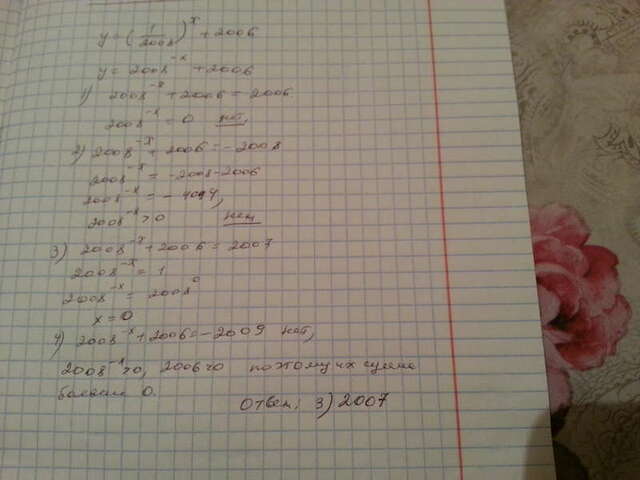 y = (1/2008)^x + 2006
y = 2008^-x + 2006
1) 2008^-x + 2006 = 2006
2008^-x = 0 нет,
2) 2008^-x + 2006 = -2008
2008^-x = -2008-2006
2008^-x = - 4014,
2008^-x > 0 нет
3) 2008^-x + 2006 = 2007
2008^-x = 1
2008^-x = 2008^0
x = 0
4) 2008^-x + 2006 = -2009 нет,
2008^-x > 0, 2006 > 0 поэтому их сумма
больше 0.
Ответ: 3) 2007